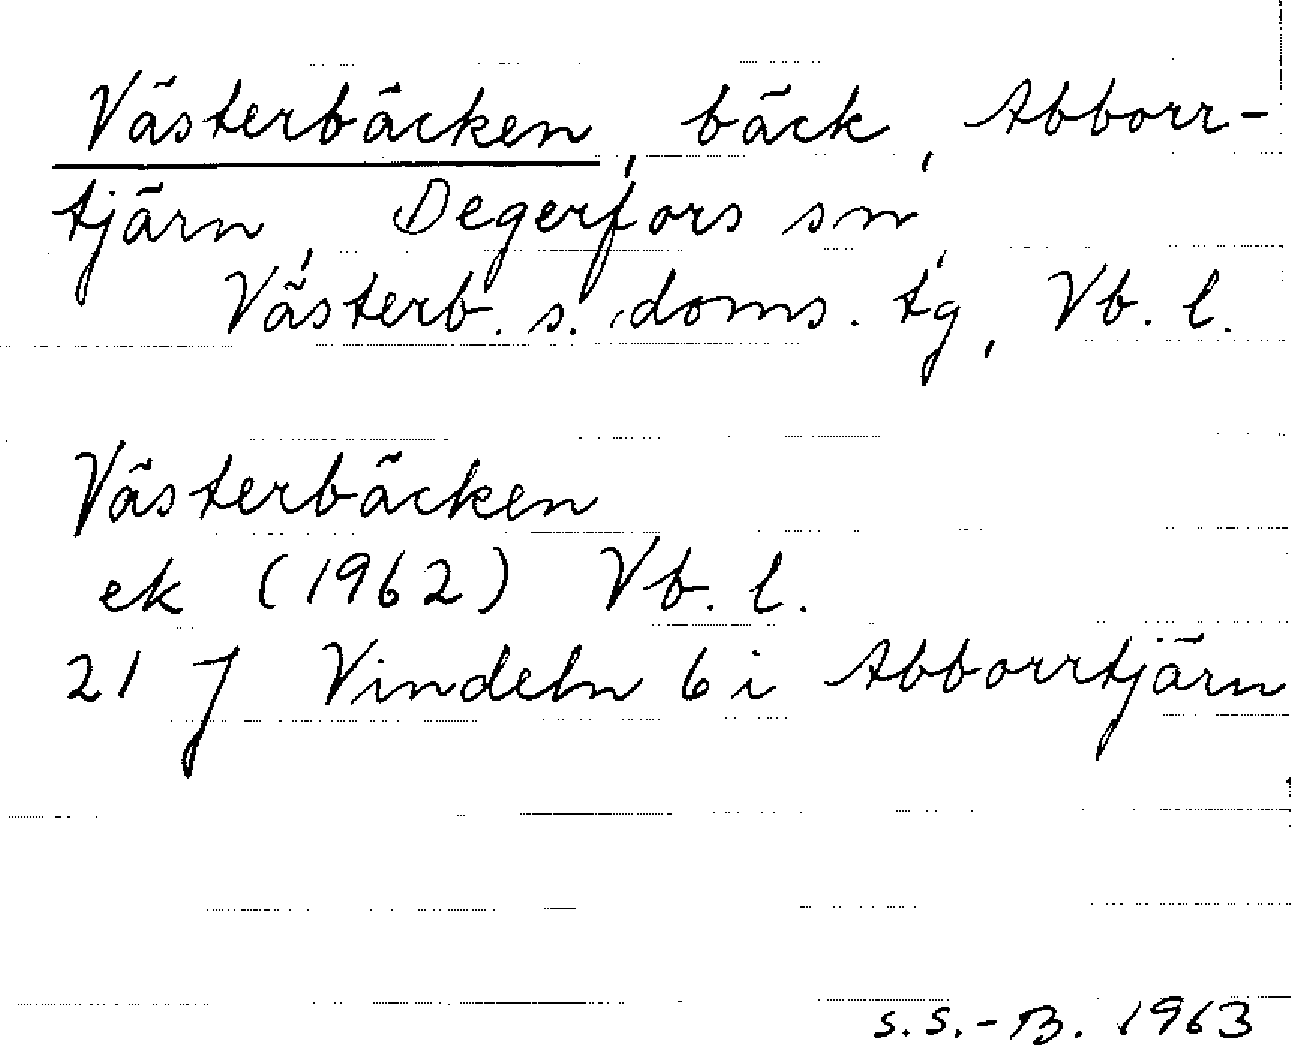 Västerbäcken, bäck, Abborr-
tjärn, Degerfors sn,
Västerb. s. doms. tg, Vb. l.
Västerbäcken
ek (1962) Vb. l.
21 J Vindeln 6 i Abborrtjärn
S.S.-B. 1963